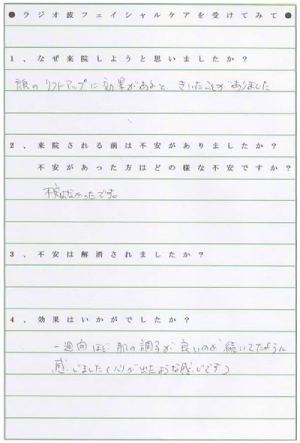 ●ラジオ波フェイシャルケアを受けてみて●
1、なぜ来院しようと思いましたか?
顔のリフトアップに効果があると、きいたことがありました
2、来院される前は不安がありましたか?
不安があった方はどの様な不安ですか?
不安はなかったです。
3、不安は解消されましたか?
4、効果はいかがでしたか?
一週間ほど肌の調子が良いのが続いてたように
感じました(ハリが出たような感じです)